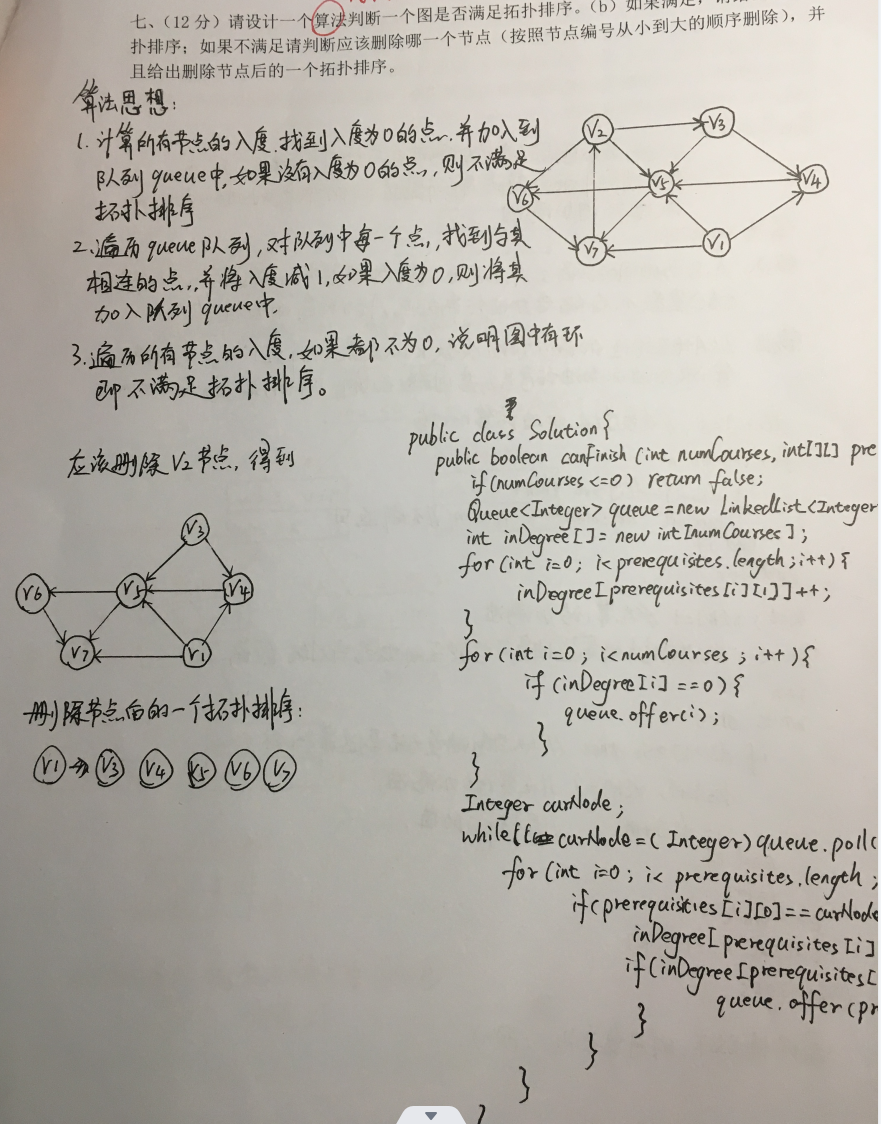 七、（12 分）请设计一个算法判断一个图是否满足拓扑排序。（b）如果满足，请给
扑排序；如果不满足请判断应该删除哪一个节点（按照节点编号从小到大的顺序删除），并
且给出删除节点后的一个拓扑排序。
算法思想：
1. 计算所有节点的入度.找到入度为0的点.并加入到
队列 queue中,如果没有入度为0的点,则不满足
拓扑排序
2.遍历queue队列,对队列中每一个点,找到与其
相连的点,并将入度减1,如果入度为0,则将其
加入队列queue中.
3.遍历所有节点的入度,如果都不为0,说明图中有环
即不满足拓扑排序。
V2 V3
V6 V5 V4
V7 V1
应该删除V2节点,得到
V3
V6 V5 V4
V7 V1
删除节点后的一个拓扑排序:
V1 → V3 V4 V5 V6 V7
public class Solution{
public boolean canFinish (int numCourses, int[][] pre
if(numCourses<=0) return false;
Queue<Integer> queue=new LinkedList<Integer
int inDegree[]=new int[numCourses];
for(int i=0; i<prerequisites.length;i++){
inDegree[prerequisites[i][1]]++;
}
for(int i=0; i<numCourses; i++){
if(inDegree[i]==0){
queue.offer(i);
}
}
Integer curNode;
while((curNode=(Integer)queue.poll(
for(int i=0; i< prerequisites.length;
if(prerequisities[i][0]==curNode
inDegree[prerequisites[i]
if(inDegree[prerequisites[
queue.offer(pr
}
}
}
}